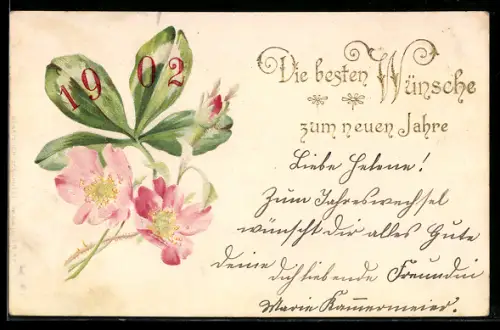 1902
Die besten Wünsche
zum neuen Jahre
Liebe Helene!
Zum Jahreswechsel
wünscht Dir alles Gute
Deine Dich liebende Freundin
Marie Kammermeier.